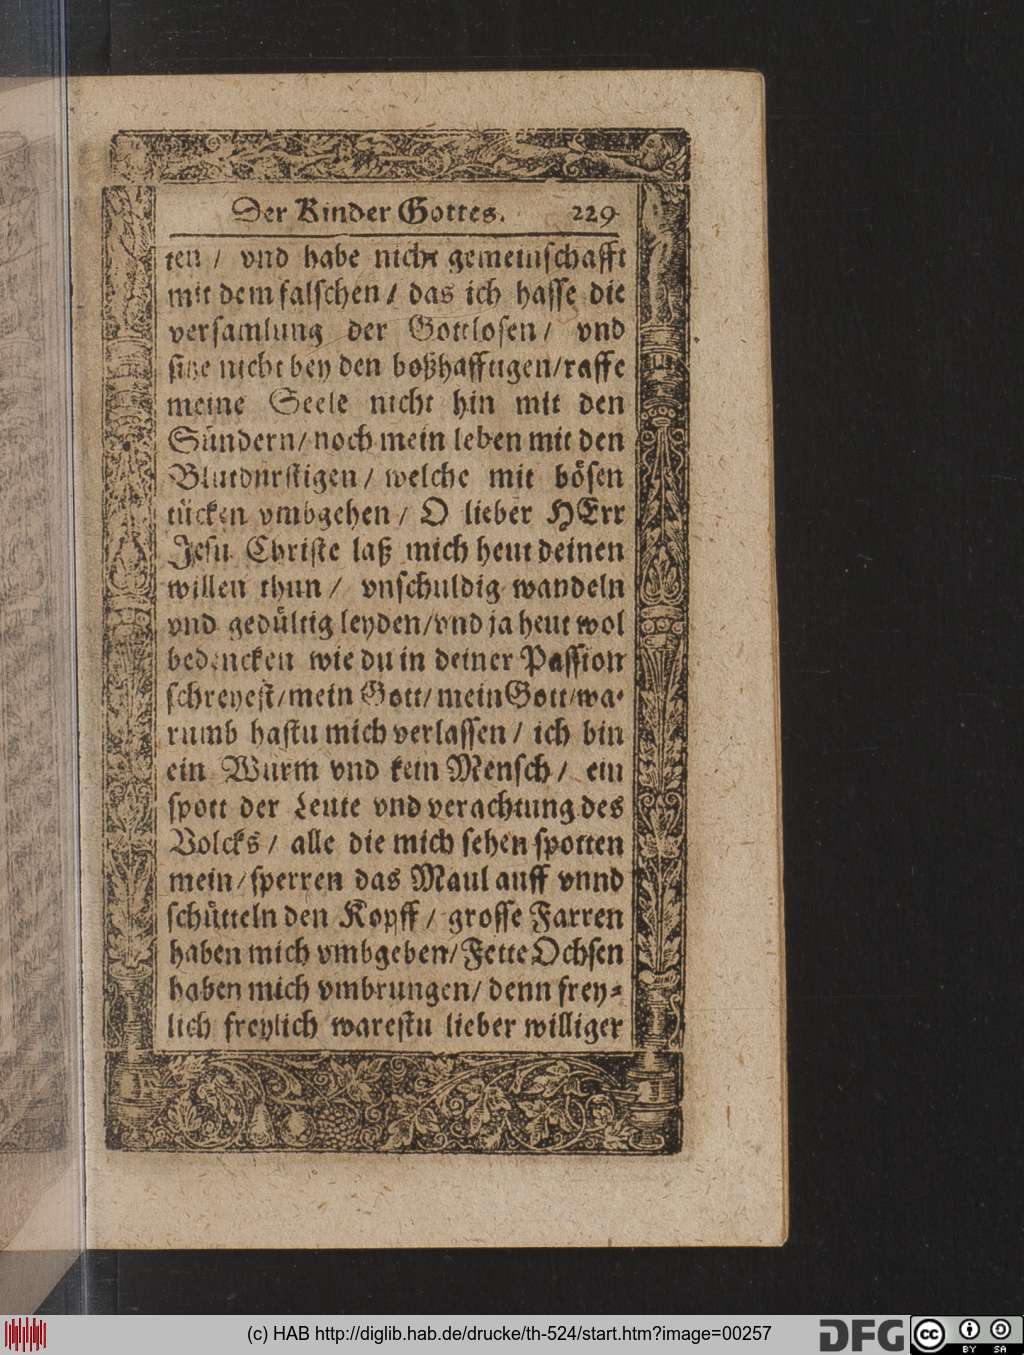 Der Kinder Gottes. 229
ten / vnd habe nicht gemeinschafft
mit dem falschen / das ich hasse die
versamlung der Gottlosen / vnd
sitze nicht bey den boßhafftigen/raffe
meine Seele nicht hin mit den
Sündern/ noch mein leben mit den
Blutdurstigen / welche mit bösen
tücken vmbgehen / O lieber HErr
Jesu Christe laß mich heut deinen
willen thun / vnschuldig wandeln
vnd gedültig leyden/vnd ja heut wol
bedencken wie du in deiner Passion
schreyest/mein Gott/ mein Gott/wa-
rumb hastu mich verlassen / ich bin
ein Wurm vnd kein Mensch / ein
spott der Leute vnd verachtung des
Volcks / alle die mich sehen spotten
mein/sperren das Maul auff vnnd
schütteln den Kopff / grosse Farren
haben mich vmbgeben/Fette Ochsen
haben mich vmbrungen/ denn frey-
lich freylich warestu lieber williger
(c) HAB http://diglib.hab.de/drucke/th-524/start.htm?image=00257
DFG cc BY SA